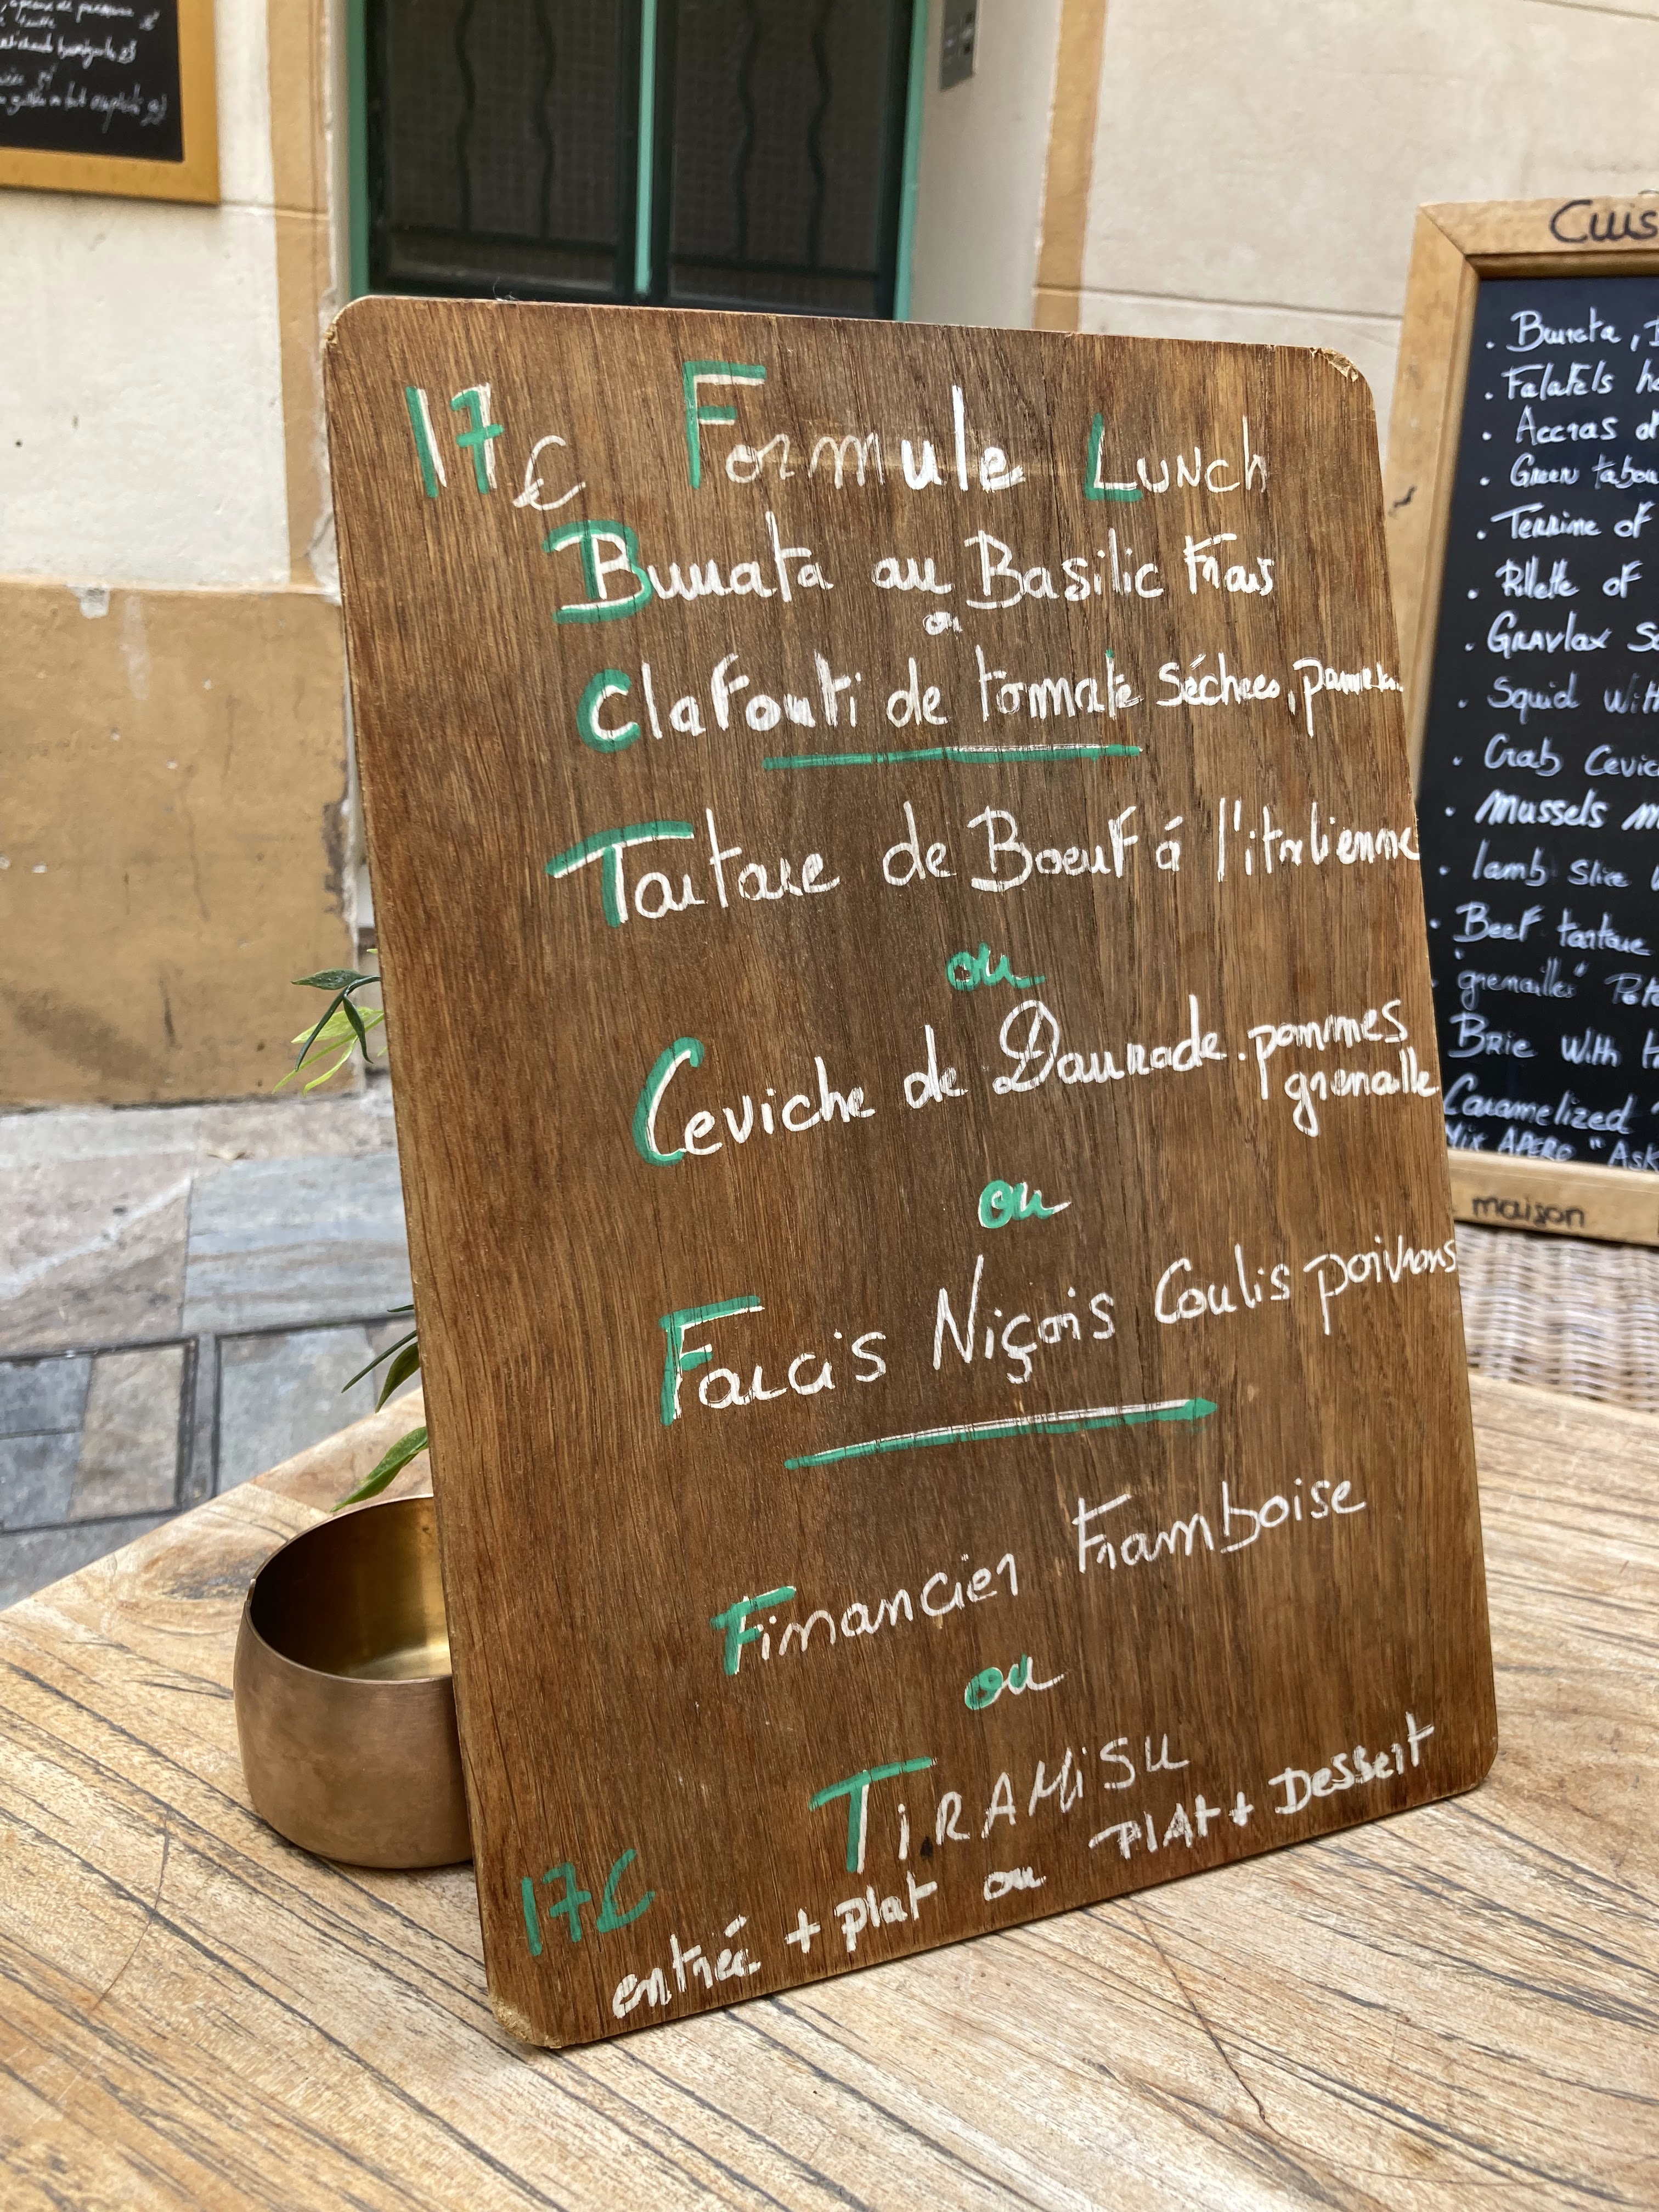 17€ Formule Lunch
Burrata au Basilic Frais
ou
Clafouti de tomate séchées, parmesan
Tartare de Boeuf á l'italienne
ou
Ceviche de Daurade. pommes
grenaille
ou
Farcis Niçois Coulis poivrons
Financier Framboise
ou
TiRAMiSU
17€
entrée + plat ou PlAt + Dessert
Cuis
. Burrata,
. Falafels
. Accras
. Green
. Terrine of
. Rillette of
. Gravlax
. Squid with
. Crab
. Mussels
. lamb slice
. Beef tartare
"grenaille"
Brie with
Caramelized
Mix APERO "Ask
maison